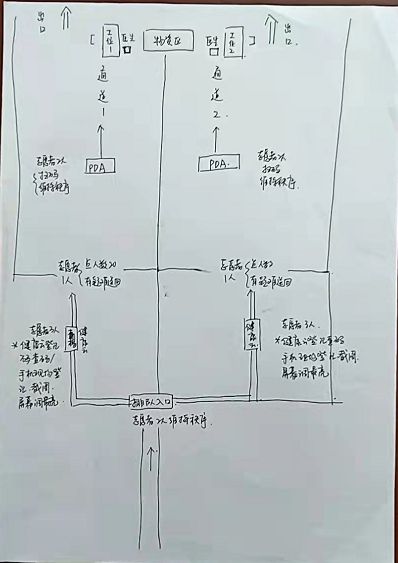 出口
出口
工位1
医生
物资区
医生
工位2
通道1
通道2.
志愿者2人
扫码
维持秩序
PDA
PDA.
志愿者2人
扫码
维持秩序
志愿者1人
点人数20
有疑难返回
志愿者1人
点人数
有疑难返回
志愿者3人
*健康云登记
码查码/
手机现场登
记 截图
屏幕调最亮
健康云
健康云
志愿者3人
*健康云登记查码
手机现场登记截图
屏幕调最亮
排队入口
志愿者2人维持秩序.